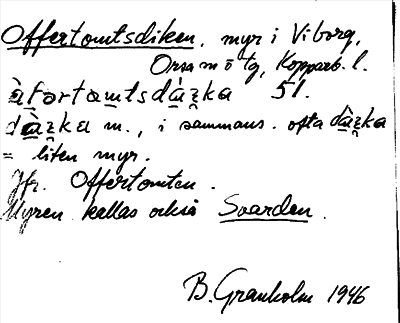 Offertomtsdiken, myr i Viborg,
Orsa m ö tg, Kopparb. l.
51.
m., i sammans. ofta
= liten myr.
Jfr. Offertomten.
Myren kallas också Svarden.
B. Granholm 1946